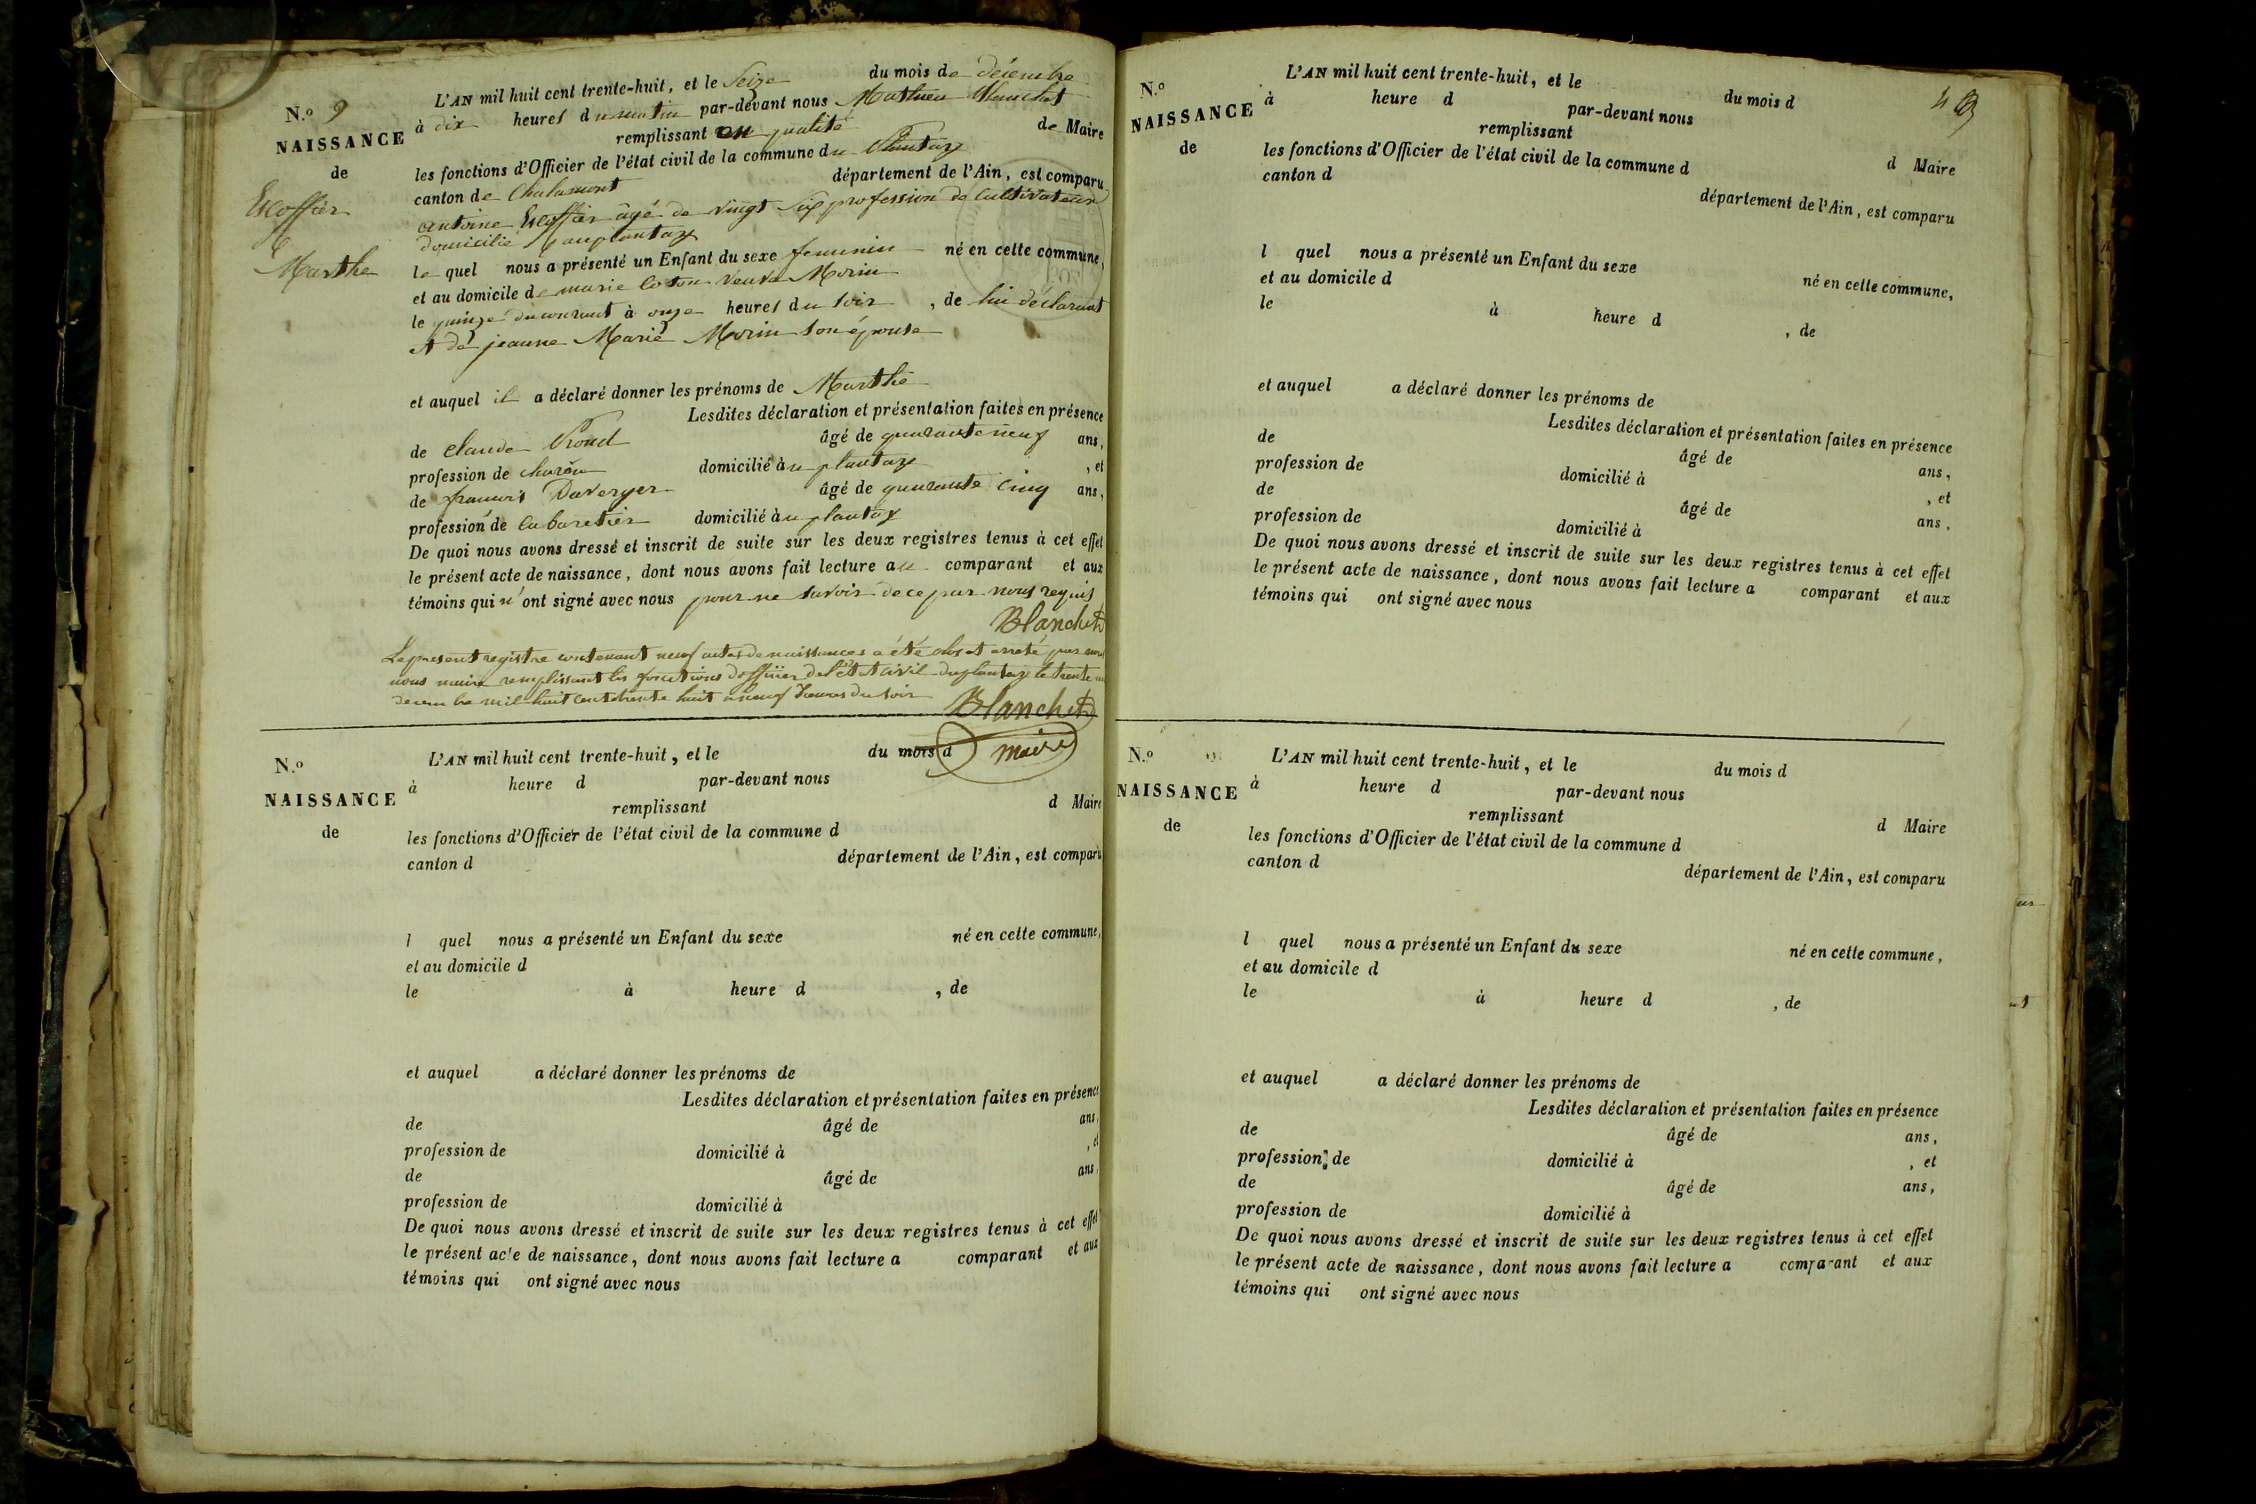 N.o 9
NAISSANCE
de
Escoffier
Marthe
L'AN mil huit cent trente-huit, et le Seize du mois de décembre
à dix heures du matin par-devant nous Mathieu Blanchet
remplissant en qualité de Maire
les fonctions d'Officier de l'état civil de la commune du Plantay
canton de Chalamont département de l'Ain, est comparu
antoine Escoffier âgé de vingt six profession de Cultivateur
domicilié au plantay
le quel nous a présenté un Enfant du sexe feminin né en cette commune,
et au domicile de marie veuve Morin
le quinze du courant à onze heures du soir, de lui déclarant
et de jeanne Marie Morin son épouse
et auquel il a déclaré donner les prénoms de Marthe
Lesdites déclaration et présentation faites en présence
de claude Proud âgé de quarante neuf ans,
profession de charon domicilié au plantay, et
de francois Duverger âgé de quarante cinq ans,
profession de cabaretier domicilié au plantay
De quoi nous avons dressé et inscrit de suite sur les deux registres tenus à cet effet
le présent acte de naissance, dont nous avons fait lecture au comparant et aux
témoins qui n'ont signé avec nous pour ne savoir de ce par nous requis
Blanchet
Le present registre contenant neuf actes de naissances a été clos et arreté par nous
nous maire remplissant les fonctions d'officier de l'état civil du plantay le trente un
decembre mil huit cent trente huit a neuf heures du soir
Blanchet
maire
N.o
NAISSANCE
de
L'AN mil huit cent trente-huit, et le du mois d
à heure d par-devant nous
remplissant d Maire
les fonctions d'Officier de l'état civil de la commune d
canton d département de l'Ain, est comparu
l quel nous a présenté un Enfant du sexe né en cette commune,
et au domicile d
le à heure d , de
et auquel a déclaré donner les prénoms de
Lesdites déclaration et présentation faites en présence
de âgé de ans,
profession de domicilié à , et
de âgé de ans,
profession de domicilié à
De quoi nous avons dressé et inscrit de suite sur les deux registres tenus à cet effet
le présent acte de naissance, dont nous avons fait lecture a comparant et aux
témoins qui ont signé avec nous
N.o
NAISSANCE
de
L'AN mil huit cent trente-huit, et le du mois d
à heure d par-devant nous
remplissant d Maire
les fonctions d'Officier de l'état civil de la commune d
canton d département de l'Ain, est comparu
l quel nous a présenté un Enfant du sexe né en cette commune,
et au domicile d
le à heure d , de
et auquel a déclaré donner les prénoms de
Lesdites déclaration et présentation faites en présence
de âgé de ans,
profession de domicilié à , et
de âgé de ans,
profession de domicilié à
De quoi nous avons dressé et inscrit de suite sur les deux registres tenus à cet effet
le présent acte de naissance, dont nous avons fait lecture a comparant et aux
témoins qui ont signé avec nous
N.o
NAISSANCE
de
L'AN mil huit cent trente-huit, et le du mois d
à heure d par-devant nous
remplissant d Maire
les fonctions d'Officier de l'état civil de la commune d
canton d département de l'Ain, est comparu
l quel nous a présenté un Enfant du sexe né en cette commune,
et au domicile d
le à heure d , de
et auquel a déclaré donner les prénoms de
Lesdites déclaration et présentation faites en présence
de âgé de ans,
profession de domicilié à , et
de âgé de ans,
profession de domicilié à
De quoi nous avons dressé et inscrit de suite sur les deux registres tenus à cet effet
le présent acte de naissance, dont nous avons fait lecture a comparant et aux
témoins qui ont signé avec nous